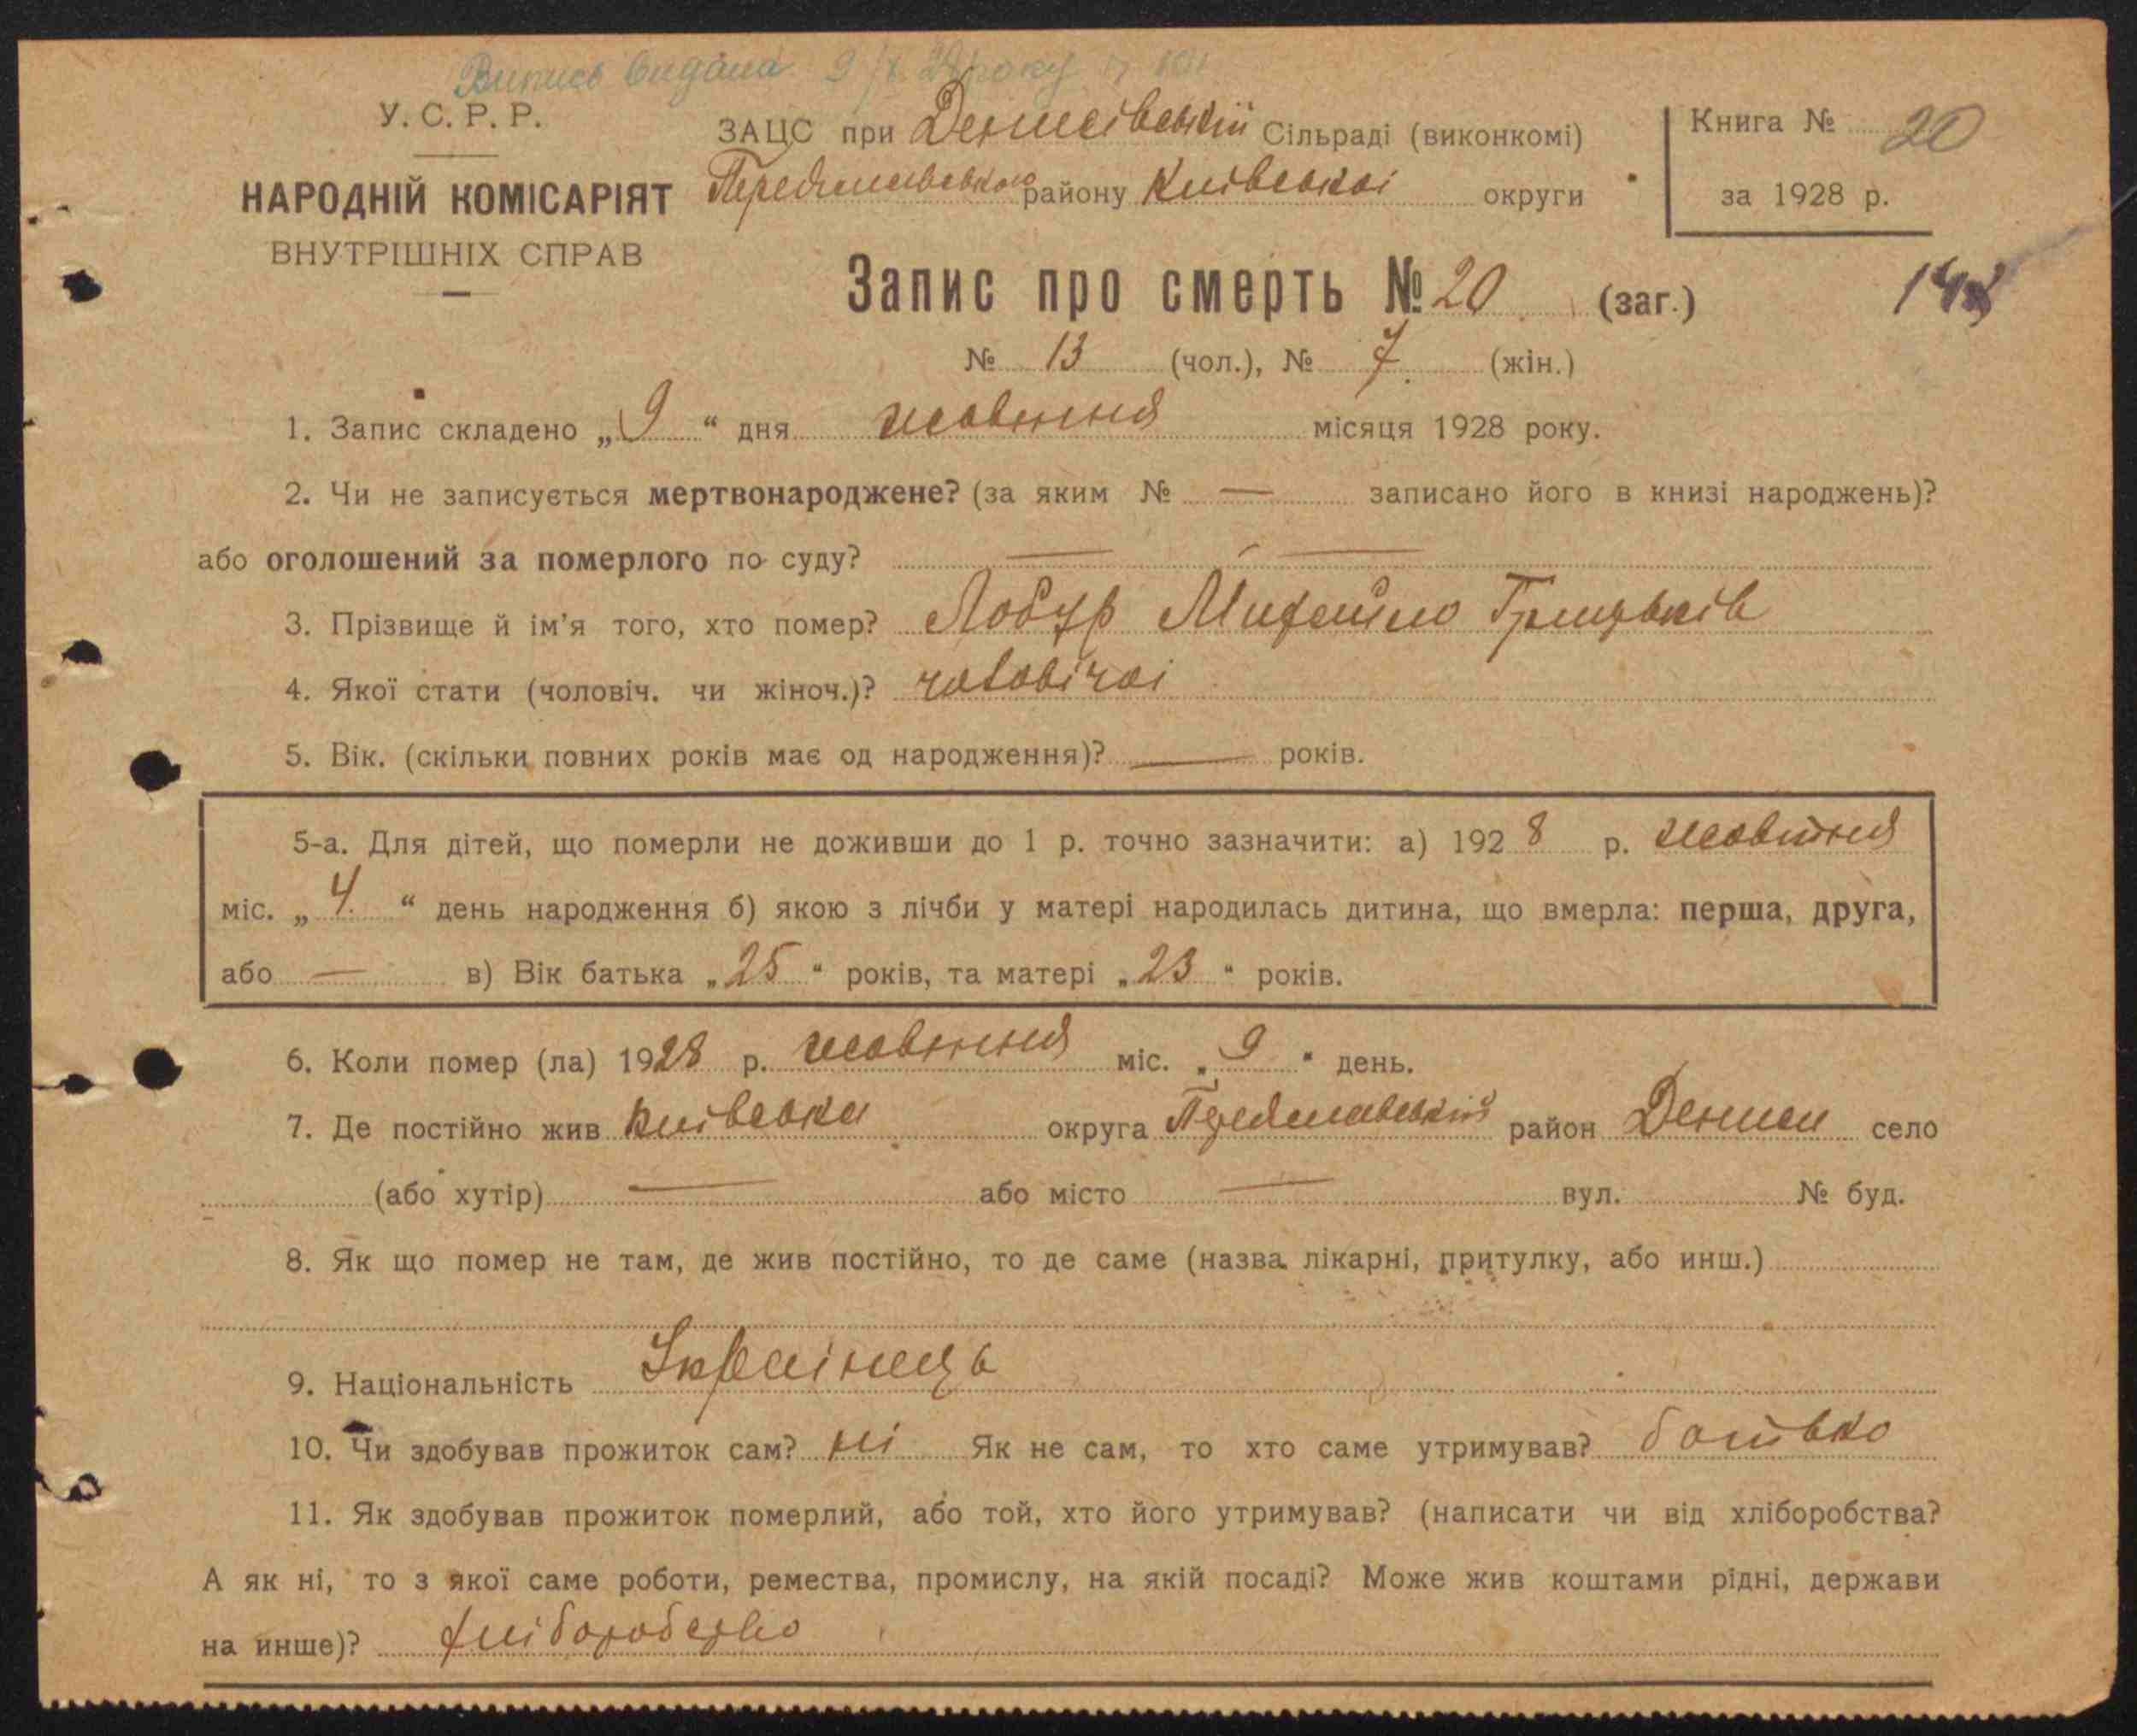 Випись видана 9/X 28 року
У. С. Р. Р.
НАРОДНІЙ КОМІСАРІЯТ
ВНУТРІШНІХ СПРАВ
ЗАЦС при Денисівській Сільраді (виконкомі)
Переяславського району Київської округи
Книга № 20
за 1928 р.
Запис про смерть № 20 (заг.)
148
№ 13 (чол.), № 7 (жін.)
1. Запис складено „9“ дня жовтня місяця 1928 року.
2. Чи не записується мертвонароджене? (за яким № — записано його в книзі народжень)?
або оголошений за померлого по суду? — —
3. Прізвище й ім'я того, хто помер? Лобур Михайло Грицьків
4. Якої стати (чоловіч. чи жіноч.)? чоловічої
5. Вік. (скільки повних років має од народження)? — років.
5-а. Для дітей, що померли не доживши до 1 р. точно зазначити: а) 1928 р. жовтня
міс. „4.“ день народження б) якою з лічби у матері народилась дитина, що вмерла: перша, друга,
або — в) Вік батька „25“ років, та матері „23“ років.
6. Коли помер (ла) 1928 р. жовтня міс. „9“ день.
7. Де постійно жив Київська округа Переяславський район Дениси село
(або хутір) — або місто — вул. № буд.
8. Як що помер не там, де жив постійно, то де саме (назва лікарні, притулку, або инш.)
9. Національність Українець
10. Чи здобував прожиток сам? ні Як не сам, то хто саме утримував? батько
11. Як здобував прожиток померлий, або той, хто його утримував? (написати чи від хліборобства?
А як ні, то з якої саме роботи, ремества, промислу, на якій посаді? Може жив коштами рідні, держави
на инше)? хліборобство